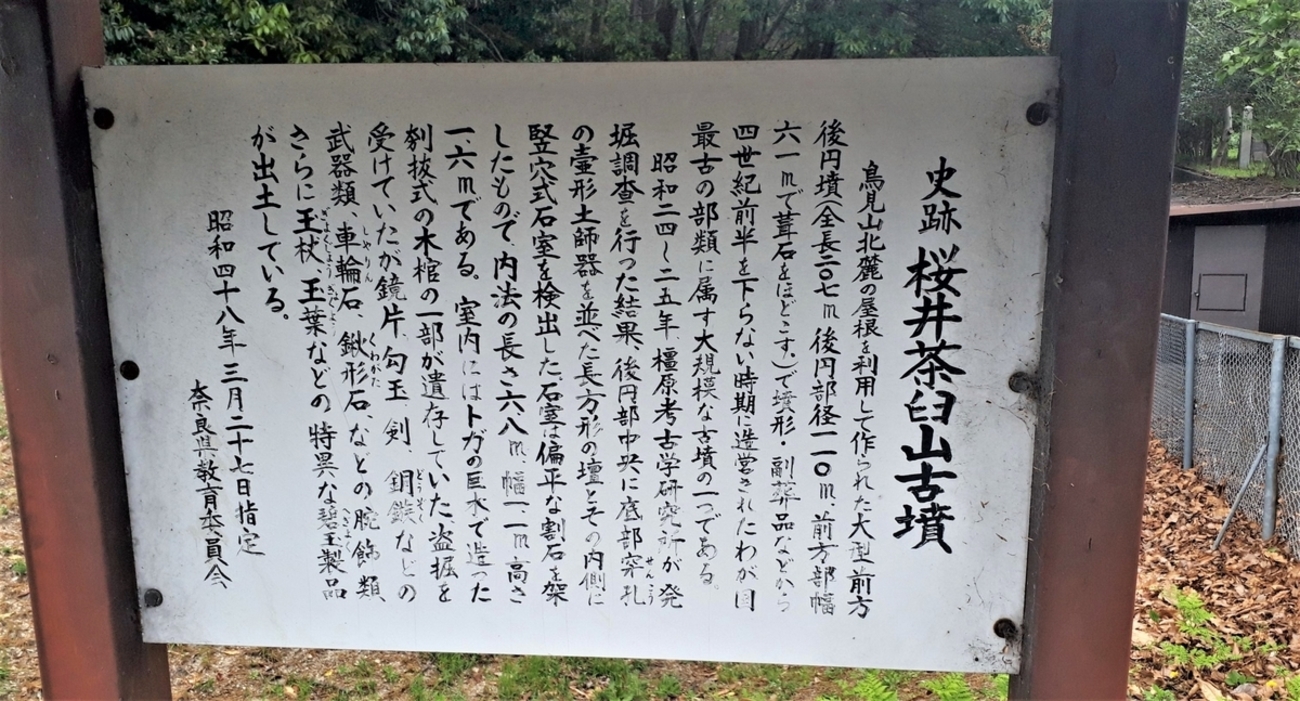 史跡 桜井茶臼山古墳
鳥見山北麓の屋根を利用して作られた大型前方
後円墳(全長二〇七m後円部径一一〇m、前方部幅
六一mで葺石をほどこす。)で墳形・副葬品などから
四世紀前半を下らない時期に造営されたわが国
最古の部類に属す大規模な古墳の一つである。
昭和二四〜二五年、橿原考古学研究所が発
堀調査を行った結果、後円部中央に底部穿孔
せんこう
の壷形土師器を並べた長方形の壇とその内側に
竪穴式石室を検出した。石室は偏平な割石を架
したもので、内法の長さ六・八m、幅一・一m、高さ
一、六mである。室内にはトガの巨木で造った
刳抜式の木棺の一部が遺存していた、盗掘を
受けていたが鏡片、勾玉、剣、銅鏃などの
どうぞく
武器類、車輪石、鍬形石、などの腕飾類、
しゃりん くわがた
さらに玉杖、玉葉などの特異な碧玉製品
ぎょくじょう
が出土している。
昭和四十八年三月二十七日指定
奈良県教育委員会